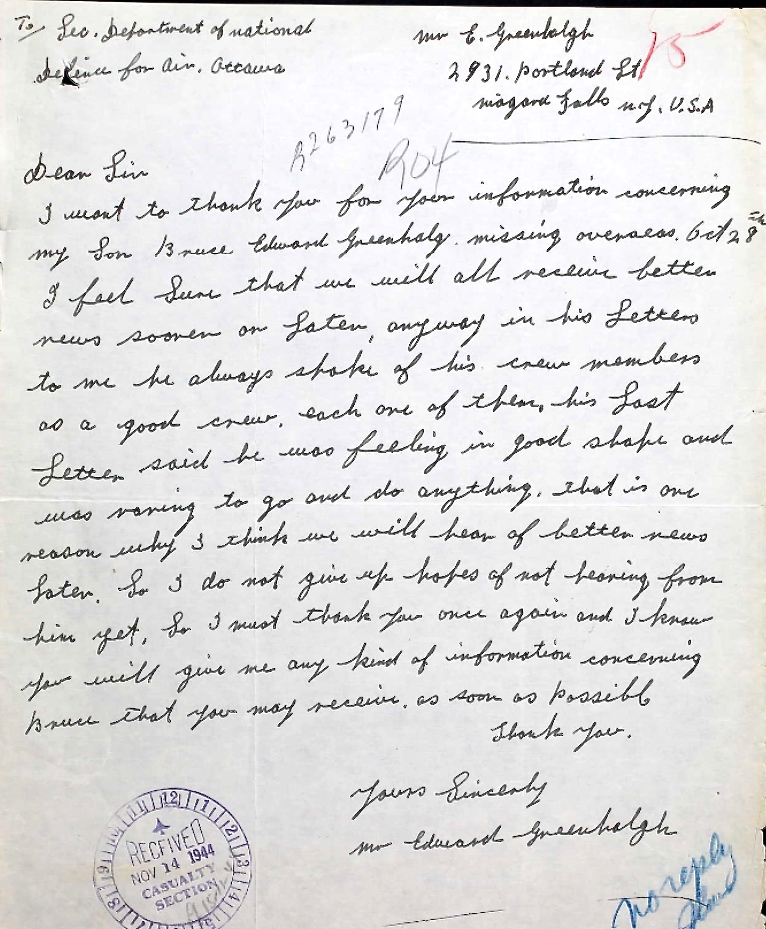 To Sec. Department of national
Defence for Air. Ottawa
Mr E. Greenhalgh
2931. Portland St
Niagara Falls n.y. U.S.A
15
R263179
R04
Dear Sir
I want to thank you for your information concerning
my Son Bruce Edward Greenhalg. missing overseas. Oct 28th
I feel Sure that we will all receive better
news sooner or Later, anyway in his Letters
to me he always spoke of his crew members
as a good crew. each one of them, his Last
Letter said he was feeling in good shape and
was raring to go and do anything. that is one
reason why I think we will hear of better news
Later. So I do not give up hopes of not hearing from
him yet, So I must thank you once again and I know
you will give me any kind of information concerning
Bruce that you may receive. as soon as Possible
Thank You.
Yours Sincerly
Mr Edward Greenhalgh
RECEIVED
NOV 14 1944
CASUALTY
SECTION
no reply